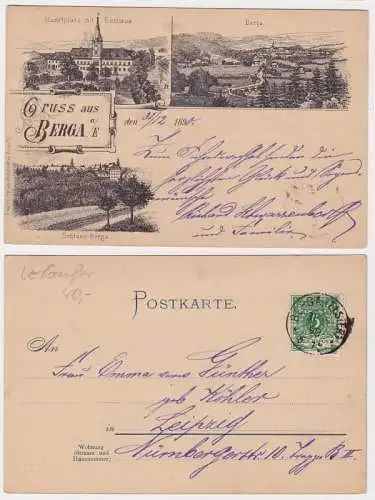 Marktplatz mit Rathaus
Berga.
Gruss aus
BERGA a/E
den 31/12 189
Zum Jahreswechsel senden die
herzlichsten Glück und Segens
wünsche
Richard Schwarzendorff
und Familie.
Schloss Berga
Vorläufer
40,-
POSTKARTE.
An
Frau Emma verw Günther
geb Köhler
in Leipzig
Wohnung
(Strasse und
Hausnummer)
Nürnbergerstr. 10. Treppe B III.